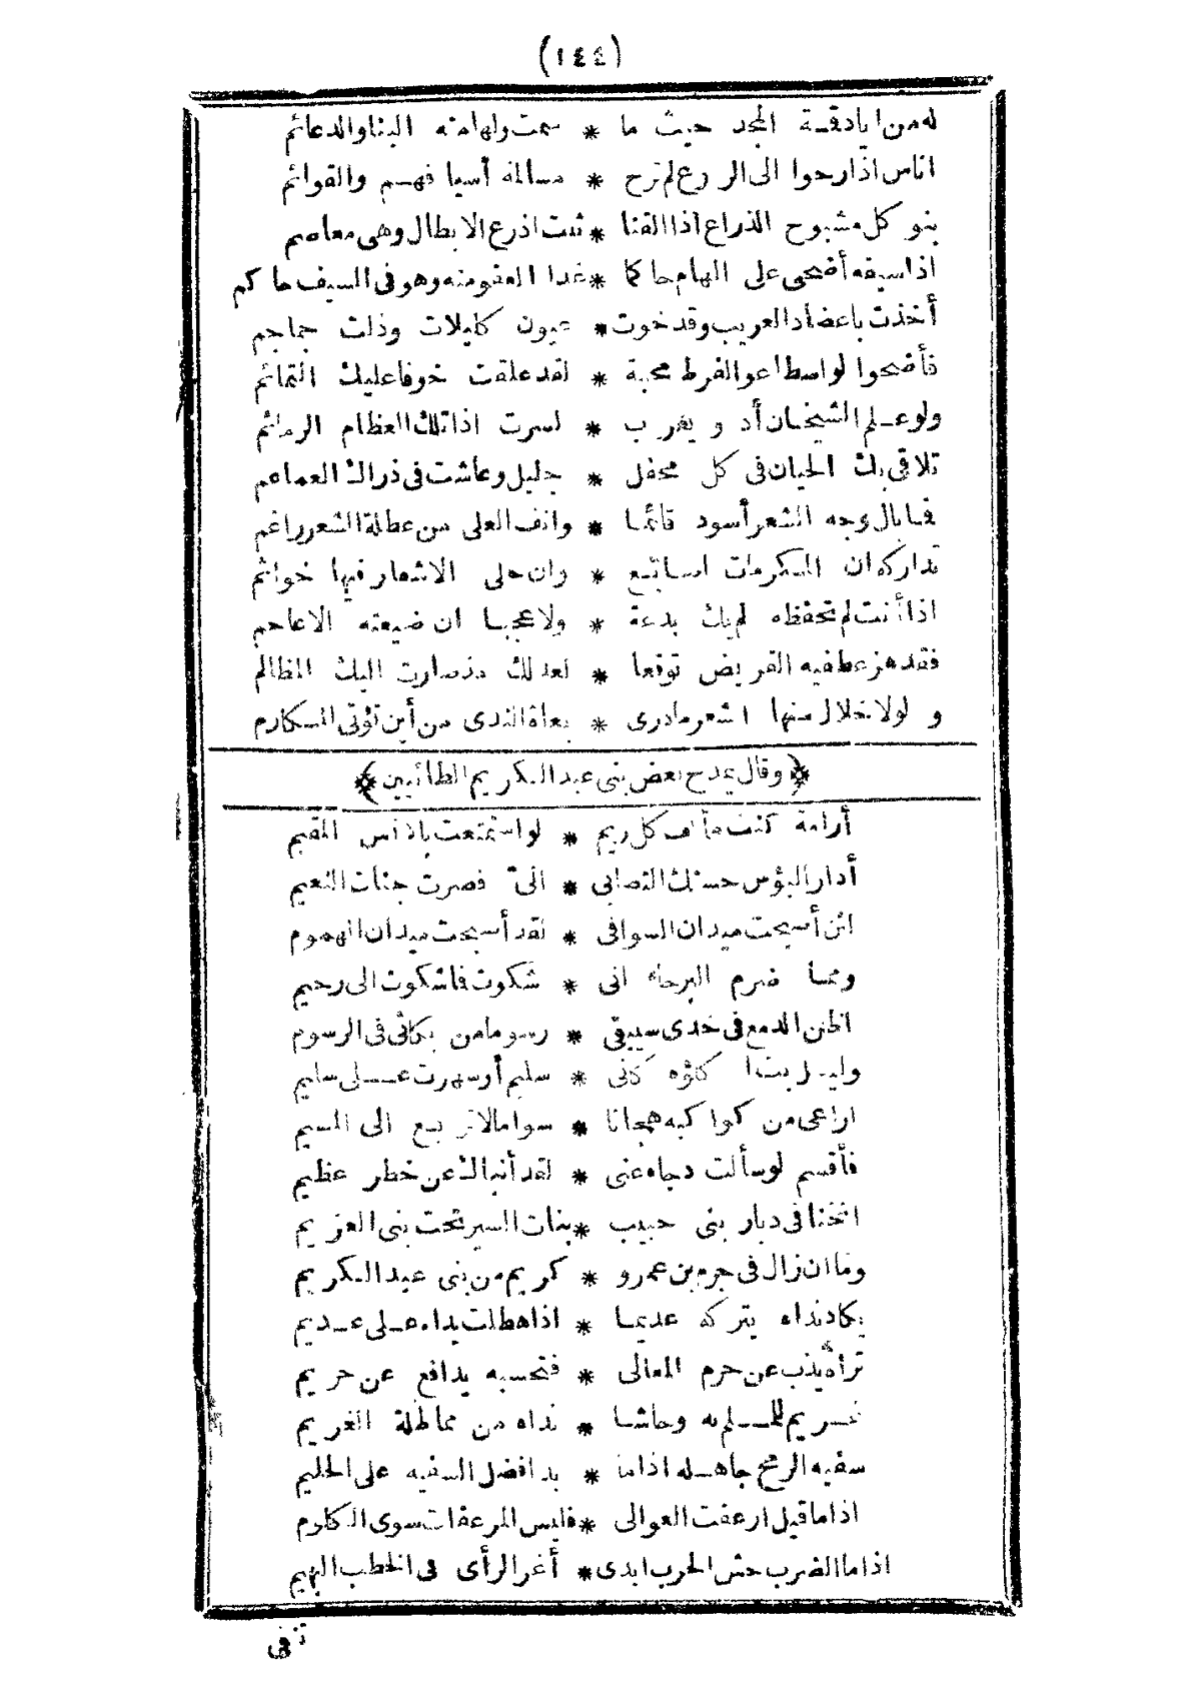 (١٤٤)
له من اياد قمة المجد حيث ما * سمت ولها منه البنا والدعائم
اناس اذا راحوا الى الروع لم ترح * مسالمة أسيافهم والقوائم
بنو كل مشبوح الذراع اذا القنا * ثنت اذرع الابطال وهى معاصم
اذا سيفه أضحى على الهام حاكما * غدا العفو منه وهو فى السيف حاكم
أخذت باعضاد العريب وقد خوت * عيون كليلات وذلت جماجم
فأضحوا لو اسطاعوا لفرط محبة * لقد علقت خوفا عليك التمائم
ولو علم الشيخان أد ويعرب * لسرت اذا تلك العظام الرمائم
تلاقى بك الحيان فى كل محفل * جليل وعاشت فى ذراك العماعم
فما بال وجه الشعر أسود قاتما * وانف العلى من عطلة الشعر راغم
تداركه ان المكرمات اصابع * وان حلى الاشعار فيها خواتم
اذا أنت لم تحفظه لم يك بدعة * ولا عجبا ان ضيعته الاعاجم
فقد هز عطفيه القريض توقعا * لعدلك مذ صارت اليك المظالم
ولولا خلال سنها الشعر ما درى * بغاة الندى من أين تؤتى المكارم
﴿وقال يمدح بعض بنى عبد الكريم الطائيين﴾
أرامة كنت مألف كل ريم * لو استمتعت بالانس المقيم
أدار البؤس حسنك التصابى * الىّ فصرت جنات النعيم
لئن أصبحت ميدان السوافى * لقد أصبحت ميدان الهموم
ومما ضرم البرحاء انى * شكوت فما شكوت الى رحيم
اظن الدمع فى خدى سيبقى * رسوما من بكائى فى الرسوم
وليل بت اكلؤه كأنى * سليم أو سهرت على سليم
اراعى من كواكبه هجانا * سواما لا تريع الى المسيم
فأقسم لو سألت دجاه عنى * لقد أنباك عن خطر عظيم
انخنا فى ديار بنى حبيب * بنات السير تحت بنى العزيم
وما ان زال فى جرم بن عمرو * كريم من بنى عبد الكريم
يكاد نداه يتركه عديما * اذا هطلت يداه على عديم
تراه يذب عن حرم المعالى * فتحسبه يدافع عن حريم
غريم للملم به وحاشا * نداه من مماطلة الغريم
سفيه الرمح جاهله اذا ما * بدا فضل السفيه على الحليم
اذا ما قيل ارعفت العوالى * فليس المرعفات سوى الكلوم
اذا ما الضرب حش الحرب ابدى * أغر الرأى فى الخطب البهيم